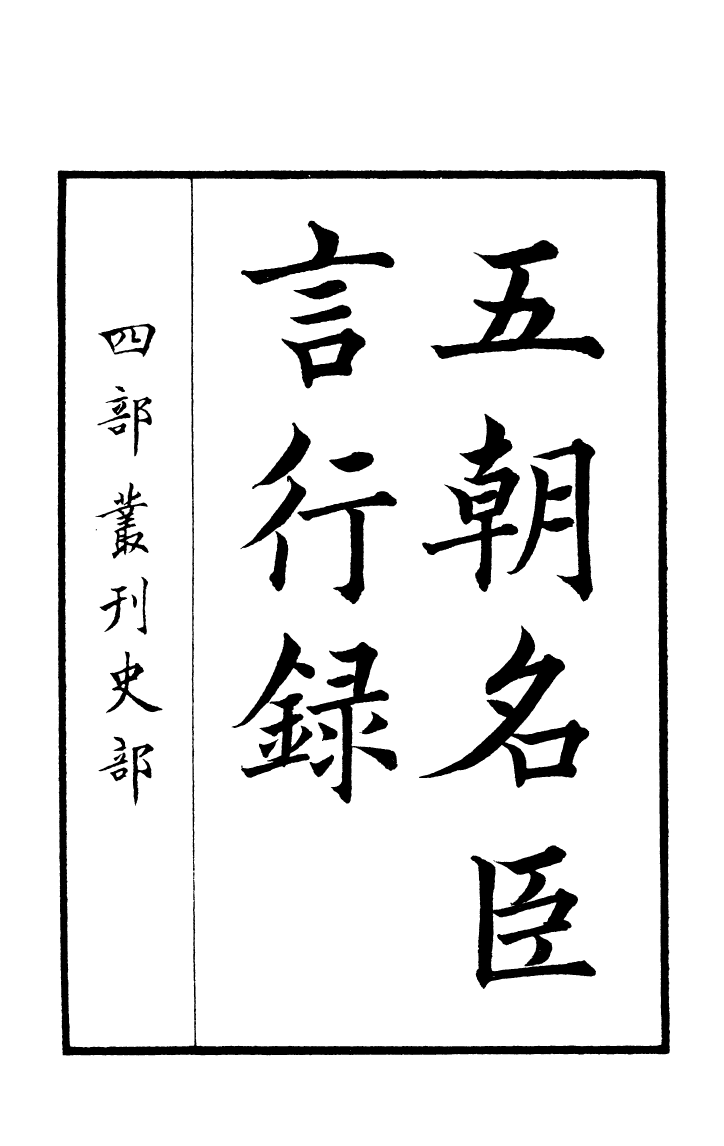 五朝名臣
言行録
四部叢刊史部